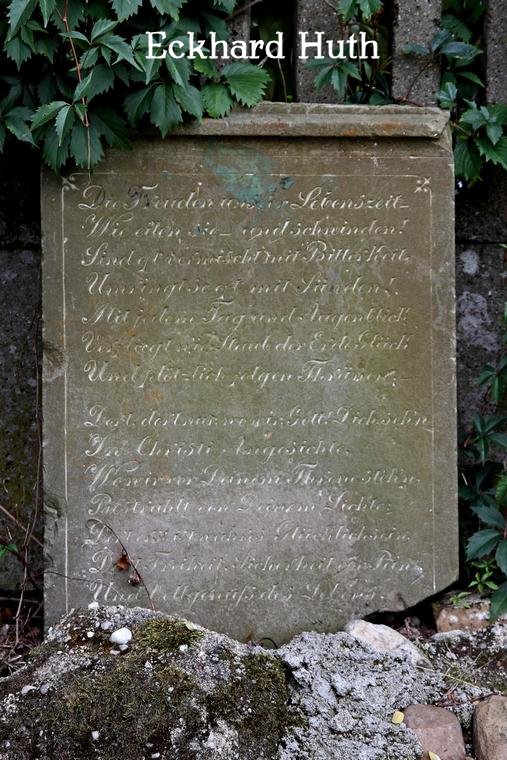 Eckhard Huth
Die Freuden unsrer Lebenszeit
Wie eilen sie und schwinden!
Sind oft vermischt mit Bitterkeit.
Umringt so oft mit Sünden!
Mit jedem Tag und Augenblick
der Erde Glück
Und plötzlich folgen Thränen
Dort, dort nur, wo wir Gott! Dich sehn
In Christi Angesichte,
Wo wir vor Deinem Throne stehn,
Bestrahlt von Deinem Lichte;
Glücklichsein,
Freiheit, Sicherheit
Und Vollgenuß des Lebens.